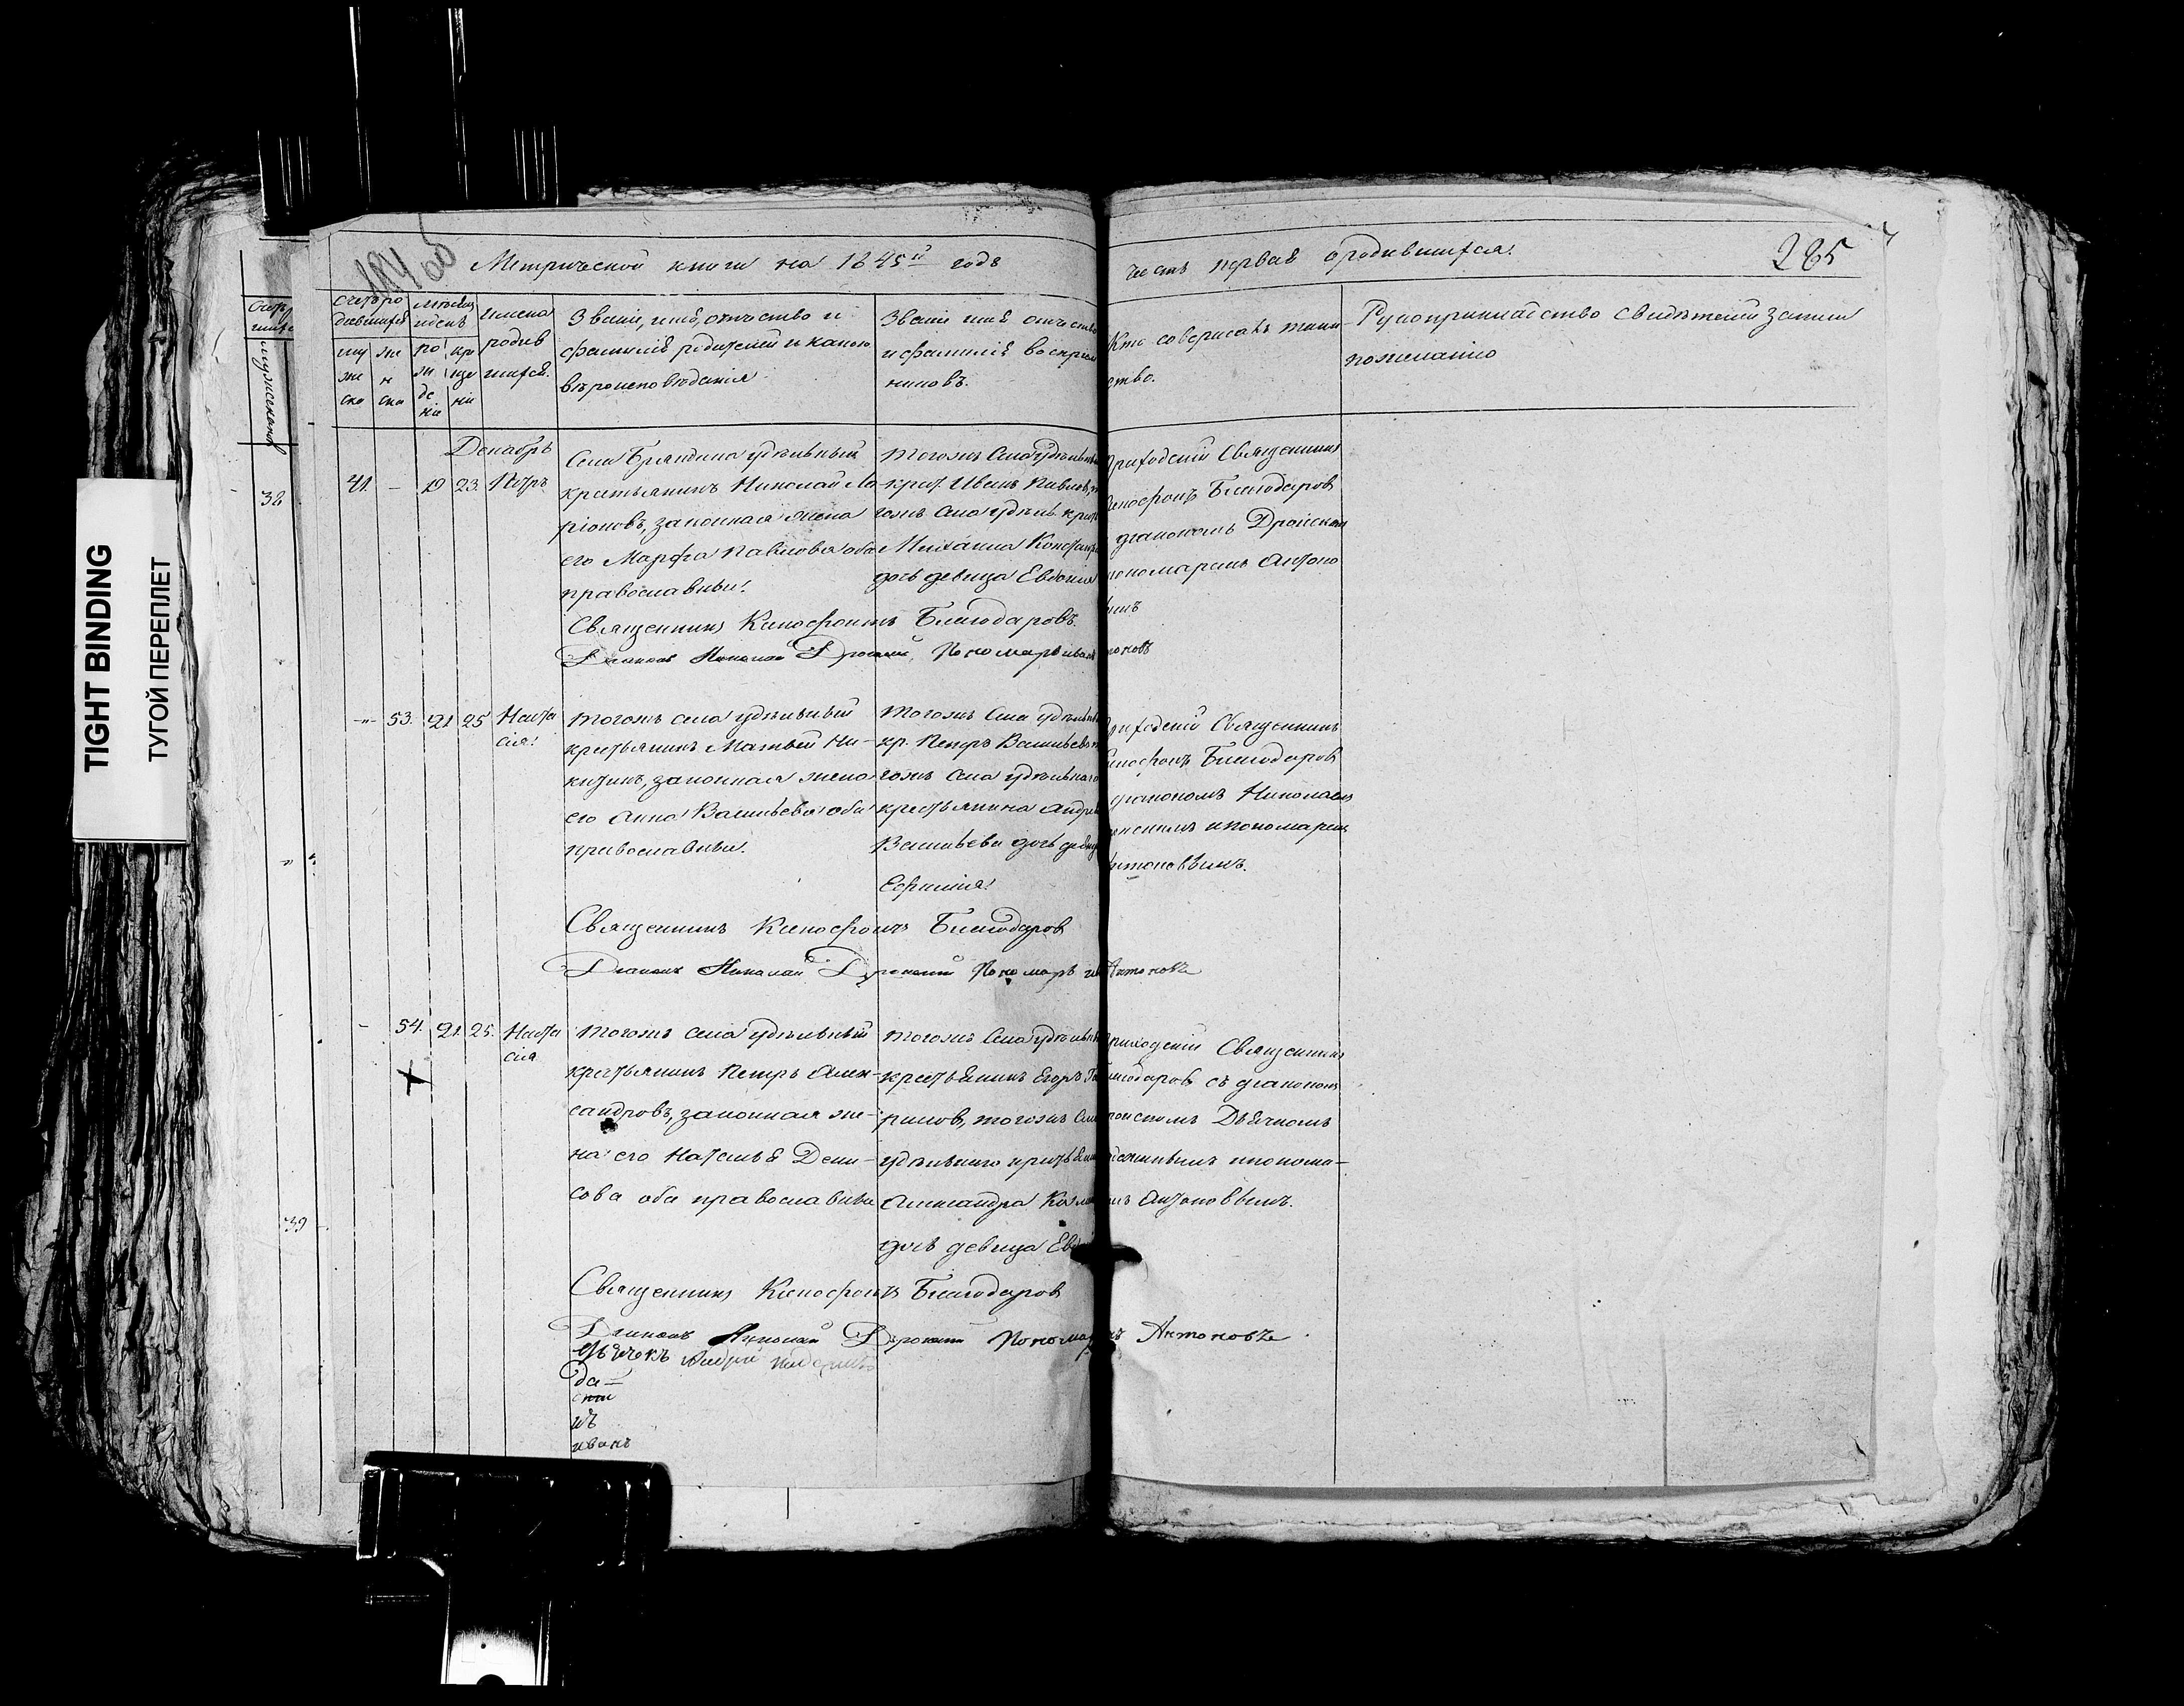 TIGHT BINDING
ТУГОЙ ПЕРЕПЛЕТ
Метрической книги на 1845й годъ
часть первая о родившихся.
285
Званіе, имя, отчество и
фамилія родителей и какого
вѣроисповѣданія
Званіе имя отчество
и фамилія воспріем
никовъ.
Кто совершалъ таин
ство.
Рукоприкладство свидѣтелей записи
по желанію
имена
родив
шихся.
Декабрь
41. - 19 23. Петръ
Села Бряндина удѣльный
крестьянинъ Николай Ла
ріоновъ, законная жена
его Марфа Павлова оба
православные.
Тогожъ Села удѣльный
крест. Иванъ Павловъ, то
гожъ Села удѣльн. крест
Михаила Констант
дочь девица Евдокия
Приходскій Священникъ
Ксенофонтъ Благодаровъ
діакономъ Дронскимъ
пономаремъ Антоно
вымъ
Священникъ Ксенофонтъ Благодаровъ.
Діаконъ Николай Дронскій, Пономарь Иванъ Антоновъ
53. 21 25 Наста
сія.
Тогожъ села удѣльный
крестьянинъ Матвей Ни-
китинъ, законная жена
его Анна Васильева оба
православные.
Тогожъ Села удѣльный
кр. Петръ Васильевъ то
гожъ Села удѣльнаго
крестьянина Андрея
Васильева дочь девица
Ефимія.
Приходскій Священникъ
Ксенофонтъ Благодаровъ
діакономъ Николаемъ
Дронскимъ и пономаремъ
Антоновымъ.
Священникъ Ксенофонтъ Благодаровъ
Діаконъ Николай Дронскій Пономарь Антоновъ
- 54. 21. 25. Наста
сія
Тогожъ села удѣльный
крестьянинъ Петръ Алек-
сандровъ, законная же-
на его Наталья Дени-
сова оба православные
Тогожъ Села удѣльный
крестьянинъ Егоръ
тогожъ Села
удѣльнаго крестьянина
Александра
дочь девица
Приходскій Священникъ
Благодаровъ съ діакономъ
Дронскимъ Дьячкомъ
и понома-
ремъ Антоновымъ.
Священникъ Ксенофонтъ Благодаровъ
Діаконъ Николай Дронскій Пономарь Антоновъ
Дьячекъ Андрей
Иванъ
38
39